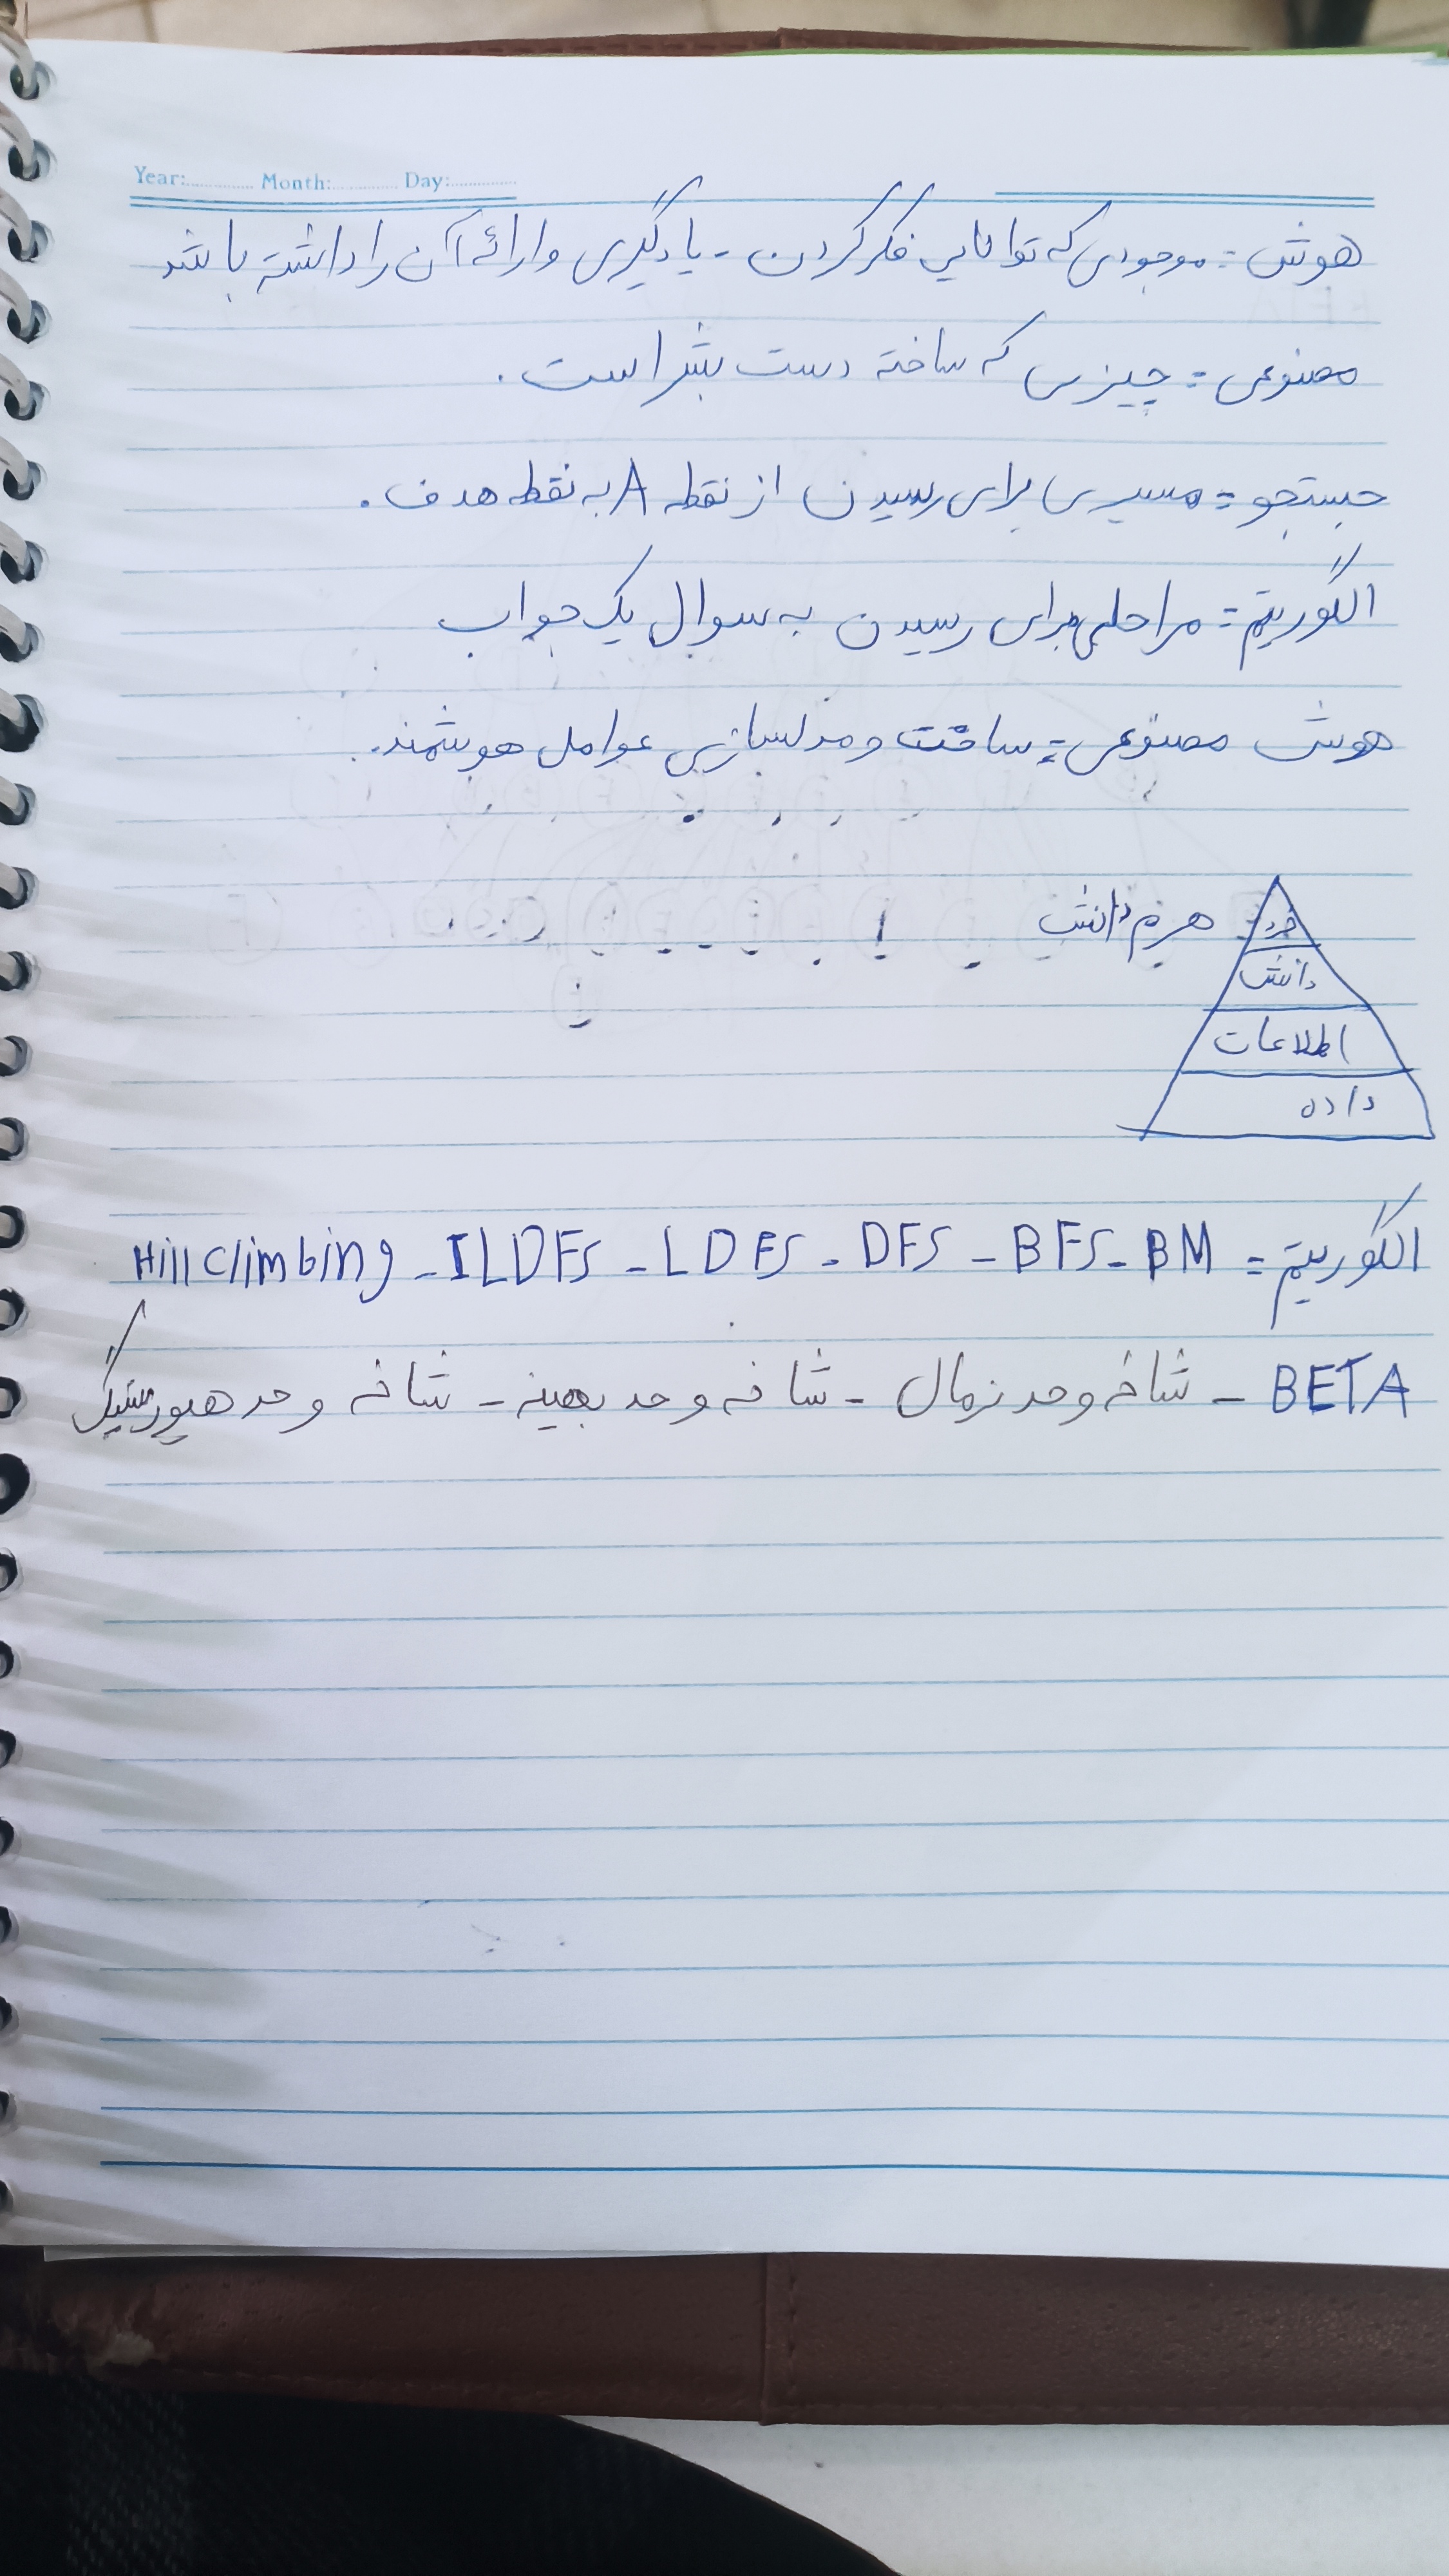 Year:............ Month:............ Day:............
هوش = موجودی که توانایی فکر کردن - یادگیری و ارائه آن را داشته باشد
مصنوعی = چیزی که ساخته دست بشر است .
جستجو = مسیری برای رسیدن از نقطه A به نقطه هدف .
الگوریتم = مراحلی برای رسیدن به سوال یک جواب
هوش مصنوعی = ساخت و مدلسازی عوامل هوشمند .
هرم دانش
خرد
دانش
اطلاعات
داده
الگوریتم = BM - BFS - DFS - LDFS - ILDFS - Hill Climbing
BETA - شاخه و حد نرمال - شاخه و حد بهینه - شاخه و حد هیوریستیگ